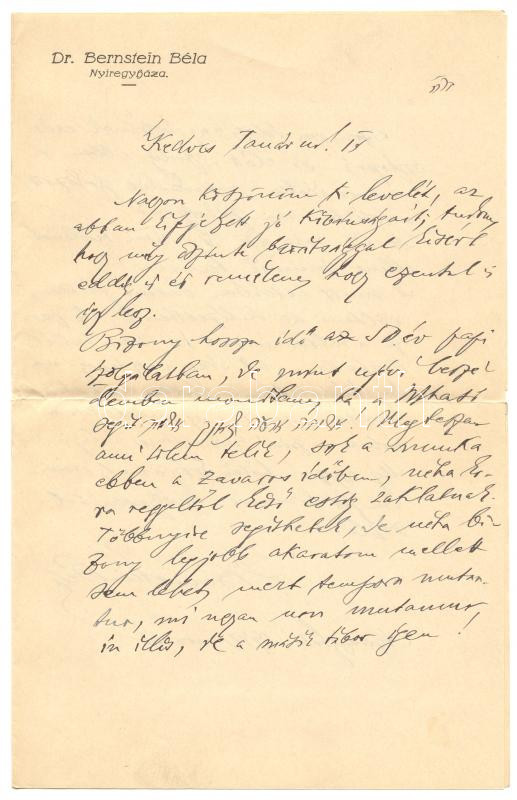 Dr. Bernstein Béla
Nyiregyháza.
Kedves Tanár ur!
Nagyon köszönöm k. levelét, az
abban kifejezett jó kivánságait; tudom
hogy mily őszinte barátsággal kisért
eddig is és remélem, hogy ezentul is
igy lesz.
Bizony hosszu idő az 50. év papi
szolgálatban, de mint ujévi beszé
demben mondtam, ha a
segit
ami tőlem telik, sok a munka
ebben a zavaros időben, néha ko-
ra reggeltől késő estig zaklatnak.
Többnyire segithetek, de néha bi-
zony legjobb akaratom mellett
sem lehet, mert tempora mutan-
tur, mi ugyan non mutamur
in illis, de a másik tábor igen!